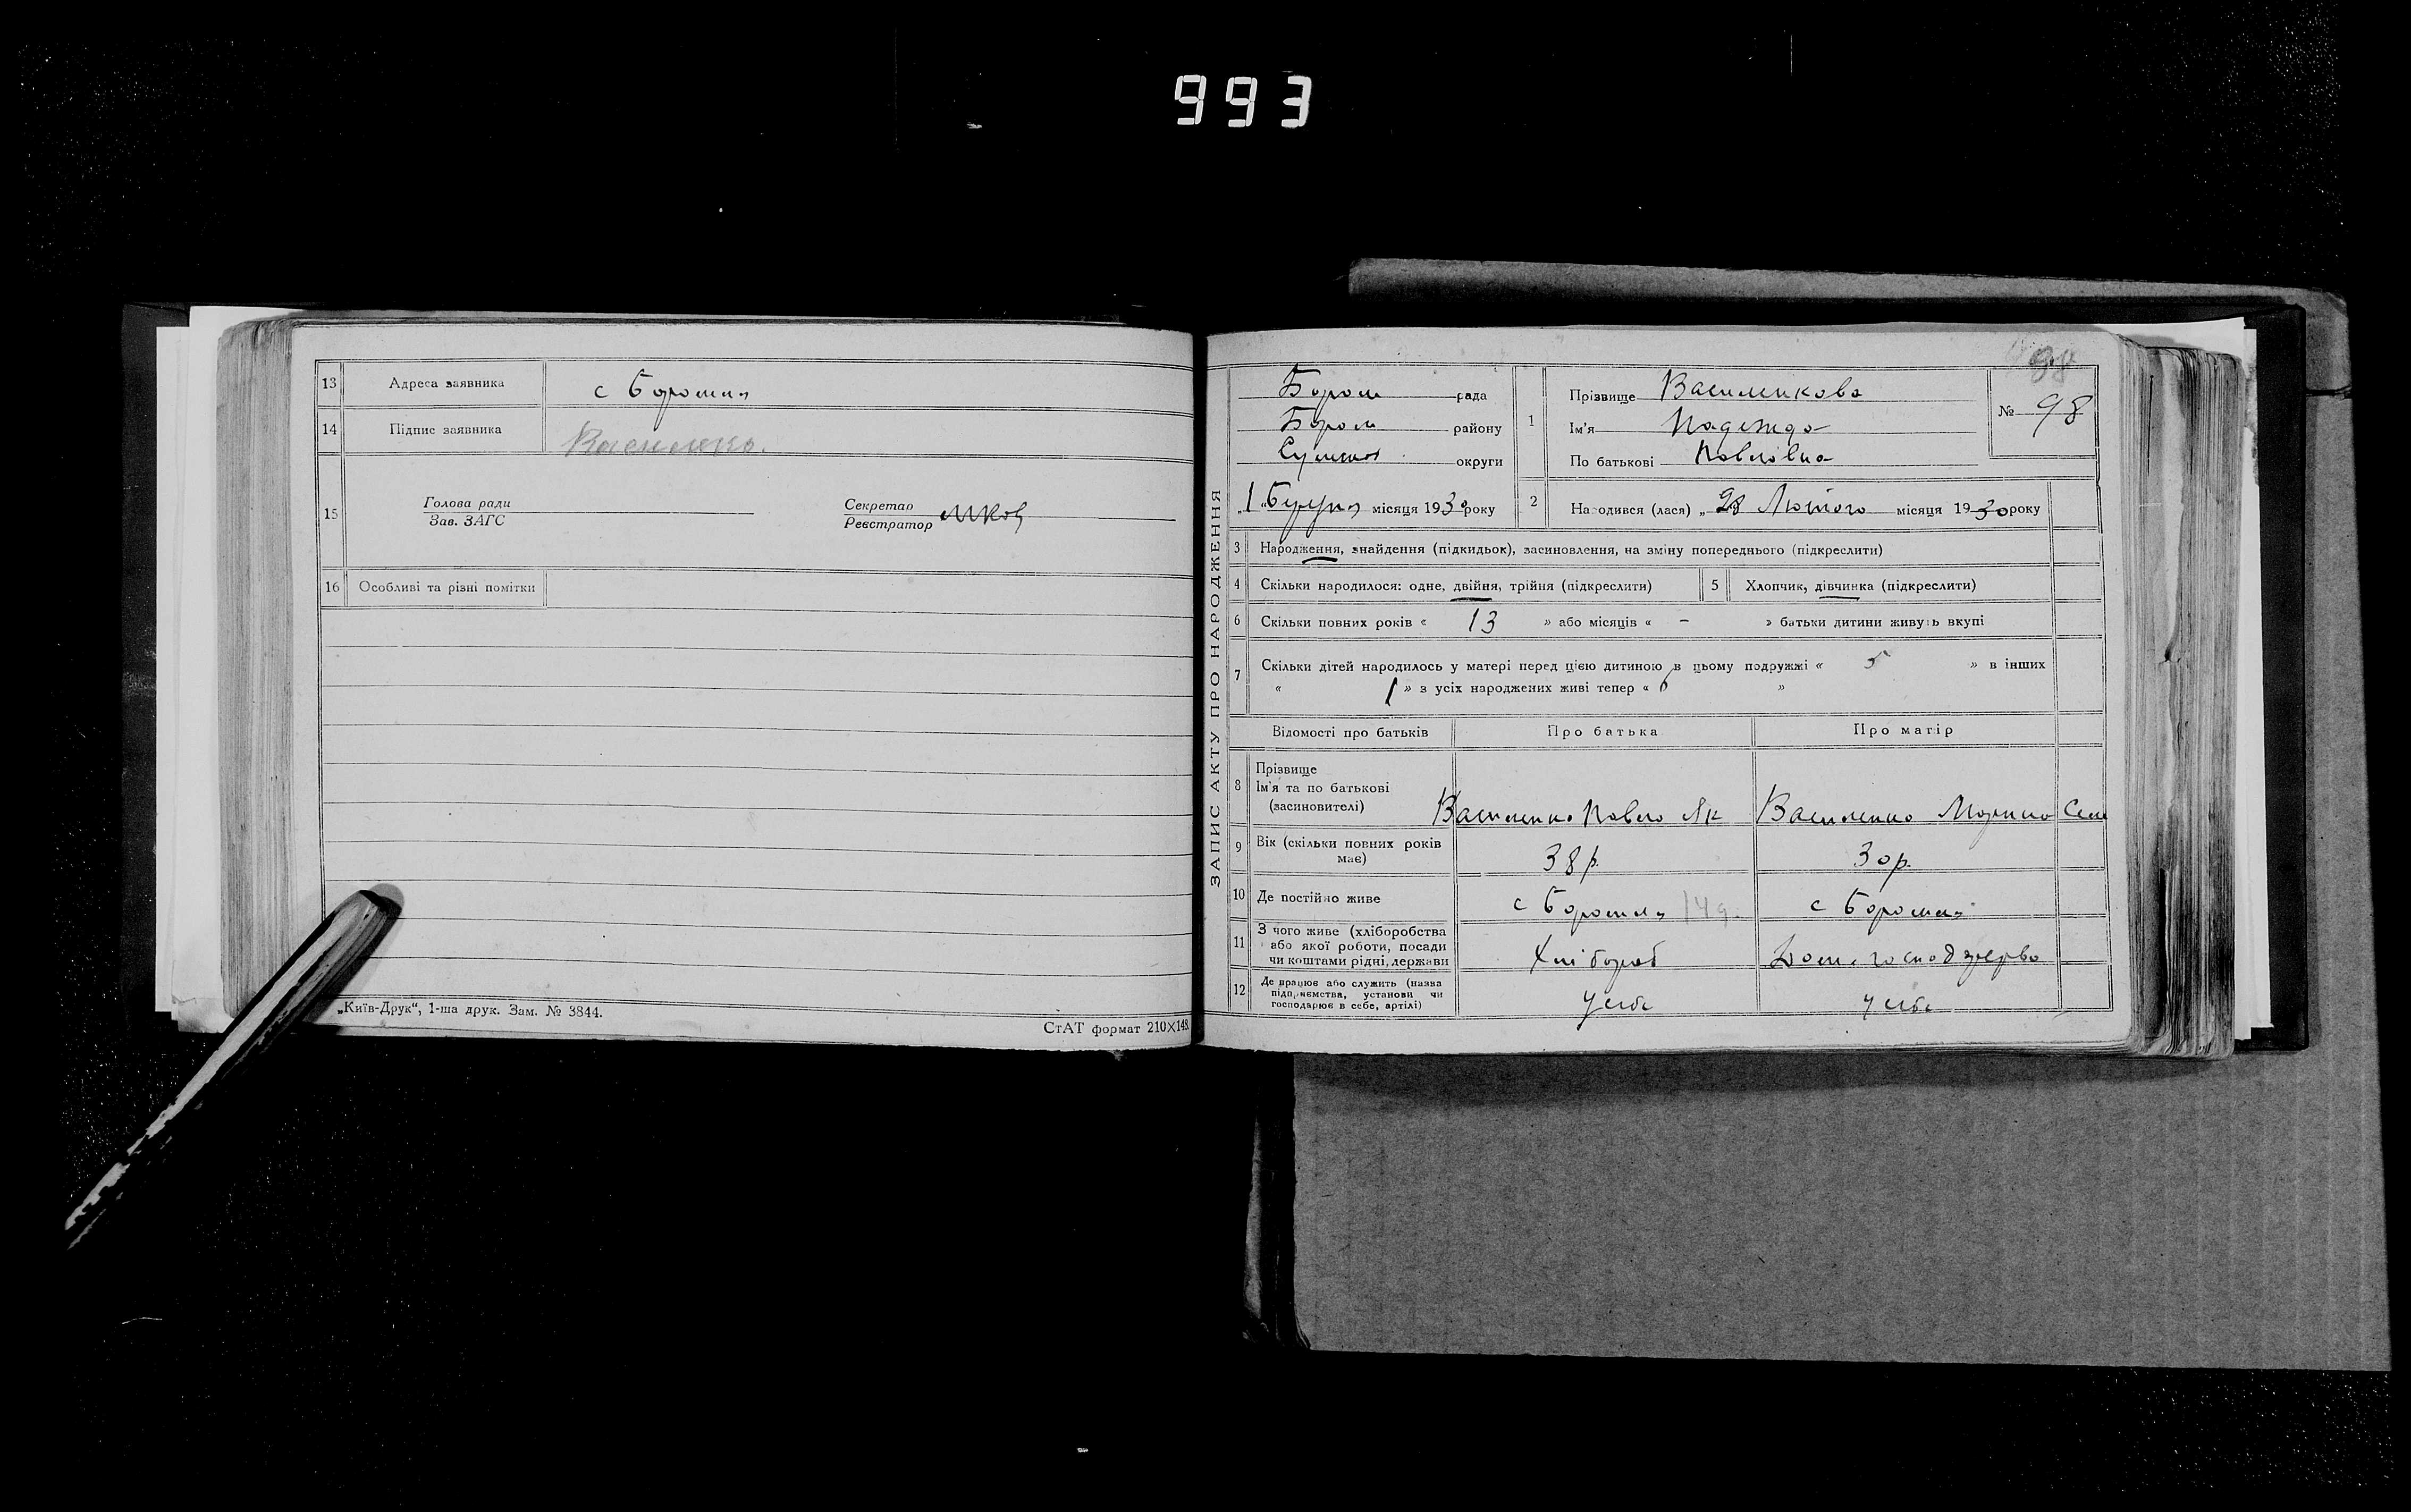 993
13 Адреса заявника с Боромля
14 Підпис заявника Василенко.
15 Голова ради
Зав. ЗАГС
Секретар
Реєстратор
16 Особливі та різні помітки
„Київ-Друк“, 1-ша друк. Зам. № 3844.
СтАТ формат 210×148.
ЗАПИС АКТУ ПРО НАРОДЖЕННЯ
Боромл рада
Боромл району
Сумської округи
„1 “ Березня місяця 1930 року
1 Прізвище Василенкова
Ім'я Надежда
По батькові Павловна
№ 98
2 Народився (лася) „28 Лютого місяця 1930 року
3 Народження, знайдення (підкидьок), засиновлення, на зміну попереднього (підкреслити)
4 Скільки народилося: одне, двійня, трійня (підкреслити)
5 Хлопчик, дівчинка (підкреслити)
6 Скільки повних років « 13 » або місяців « - » батьки дитини живуть вкупі
7 Скільки дітей народилось у матері перед цією дитиною в цьому подружжі « 5 » в інших
« 1 » з усіх народжених живі тепер « 6 »
Відомості про батьків Про батька Про матір
8 Прізвище
Ім'я та по батькові
(засиновителі)
Василенко Павло Як Василенко Марина Сем
9 Вік (скільки повних років
має)
38 р. 30 р.
10 Де постійно живе с Боромля с Боромля
11 З чого живе (хліборобства
або якої роботи, посади
чи коштами рідні, держави
Хлібороб Дом. господарство
12 Де працює або служить (назва
підприємства, установи чи
господарює в себе, артілі)
У себе У себе